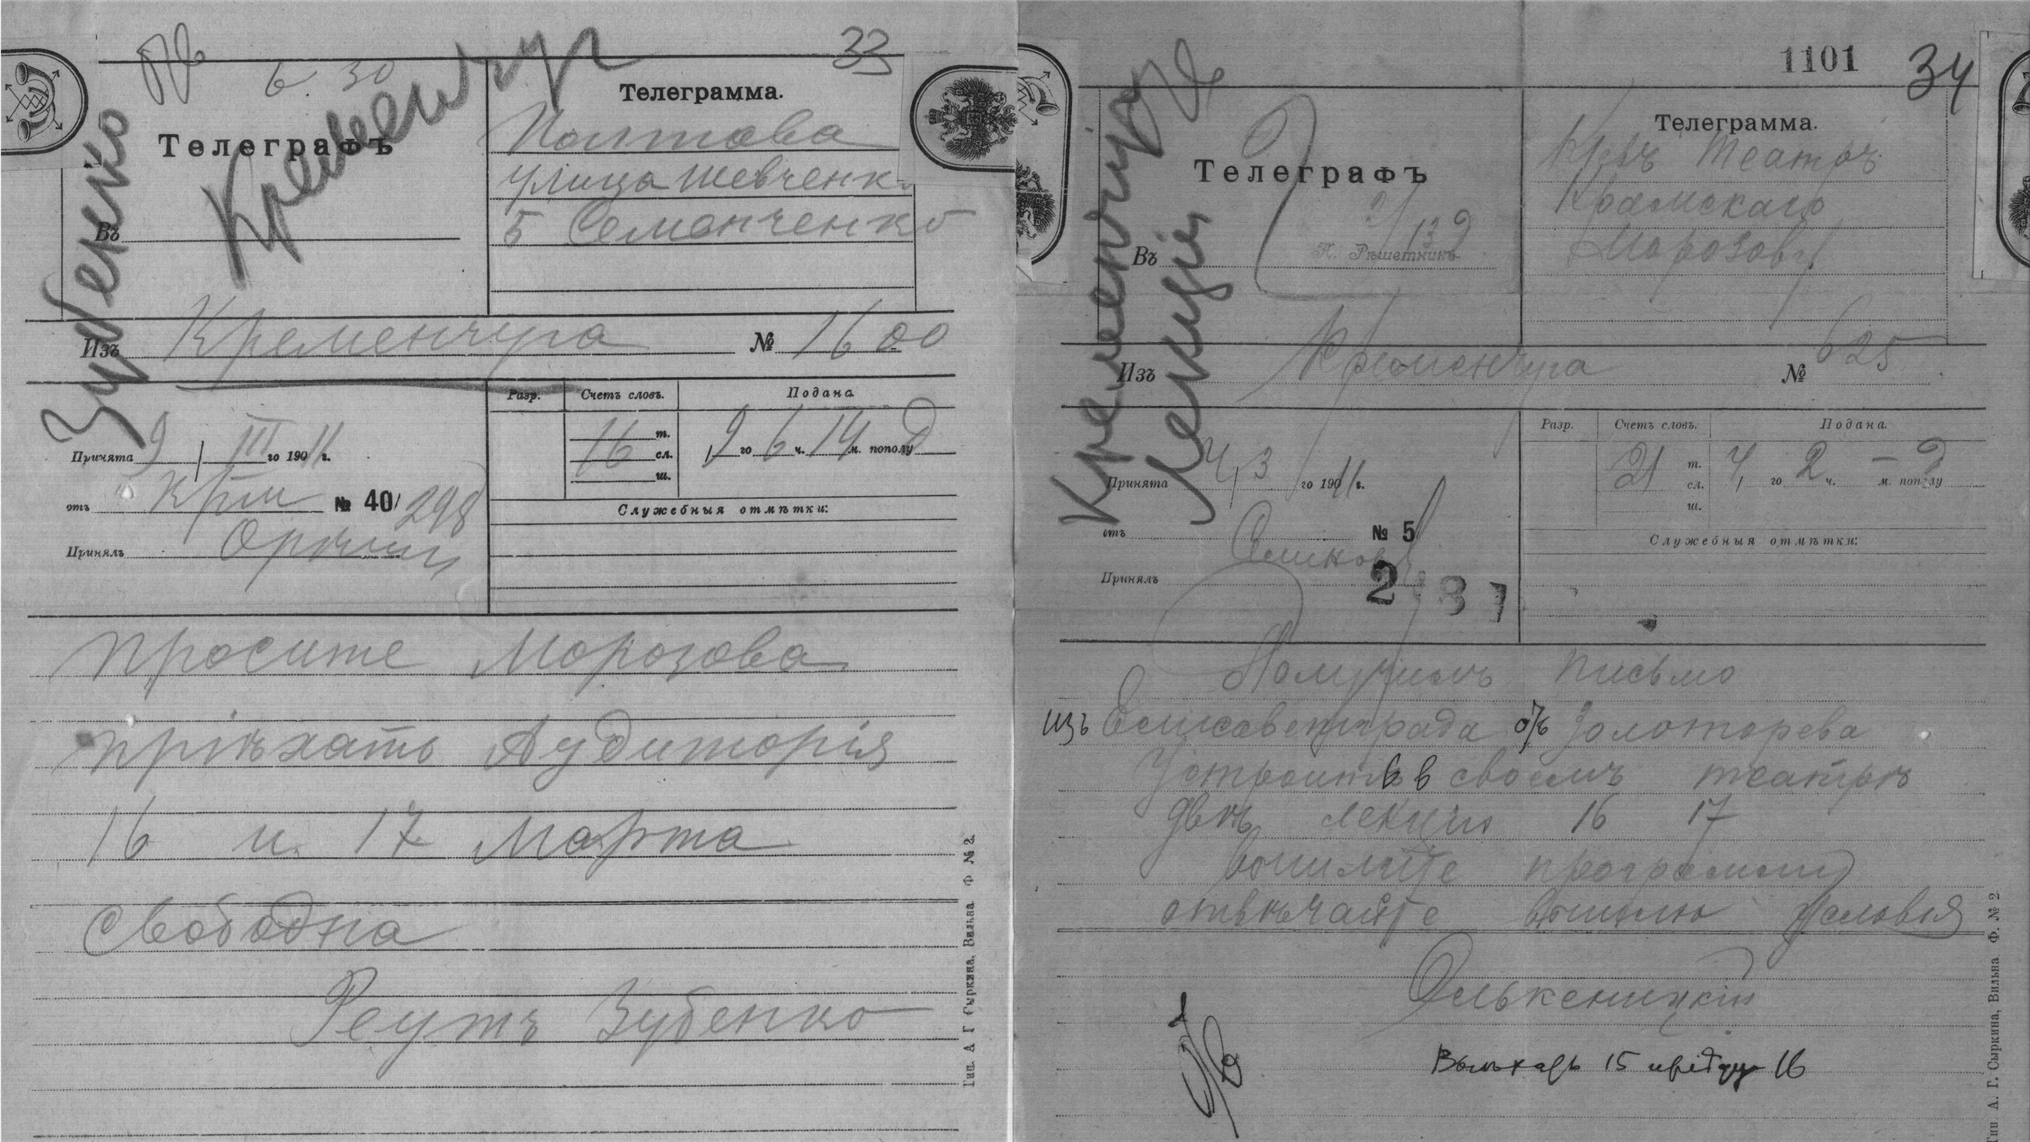 33
6. 30
Кременчуг
Зубенко
Телеграфъ
Въ
Телеграмма.
Полтава
улица Шевченк
Б Семенченко
Изъ Кременчуга № 1600
Принята 9 / III го 1911 г.
отъ Крм № 40/298
Принялъ
Разр. Счетъ словъ. Подана
16 т. сл. ш.
9 го 6 ч. 14 м. пополу д
Служебныя отмѣтки:
просите Морозова
пріѣхать Аудиторія
16 и 17 марта
свободна
Реутъ Зубенко
Тип. А. Г. Сыркина, Вильна Ф № 2.
1101
34
Кременчуг
Лекціи
Телеграфъ
Въ
П. Рѣшетникъ
Телеграмма.
Театръ
Крамскаго
Морозову
Изъ Кременчуга № 625
Принята 4, 3 го 1911 г.
отъ № 5
Принялъ
2 8 1
Разр. Счетъ словъ. Подана.
21 т. сл. ш.
4 го 2 ч. — м. пополу д
Служебныя отмѣтки:
Получилъ письмо
изъ Елисаветграда отъ Золоторева
Устроить в своемъ театрѣ
двѣ лекціи 16 17
вышлите программы
отвѣчайте вышлю условія
Олькеницкій
Выѣхать 15 16
Тип. А. Г. Сыркина, Вильна Ф. № 2